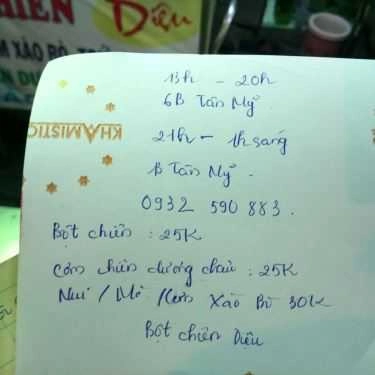 HIEN Diệu
M XÀO BÒ,
KHAMISTIC
13h - 20h
6B Tân Mỹ.
21h - 1h sáng
B Tân Mỹ.
0932 590 883.
Bột chiên : 25K
Cơm chiên dương châu : 25K
Nui / Mì / Cơm Xào Bò 30K
Bột chiên Diệu